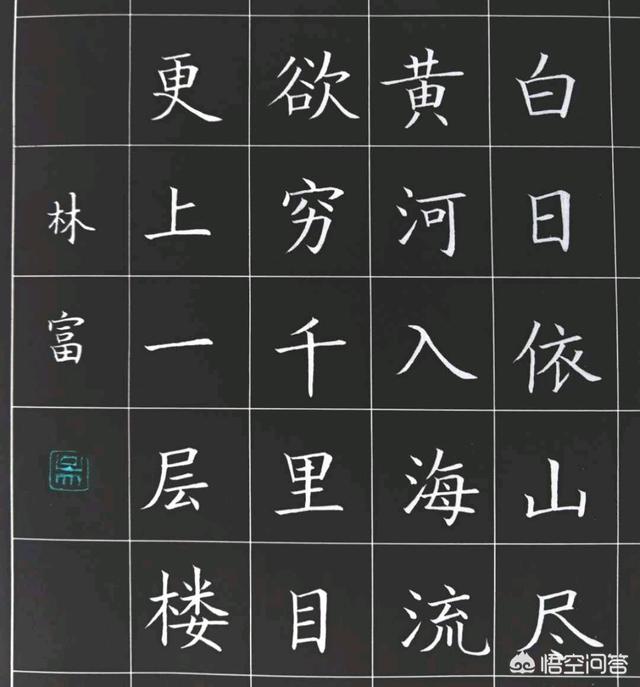 白日依山尽
黄河入海流
欲穷千里目
更上一层楼
林富
悟空问答